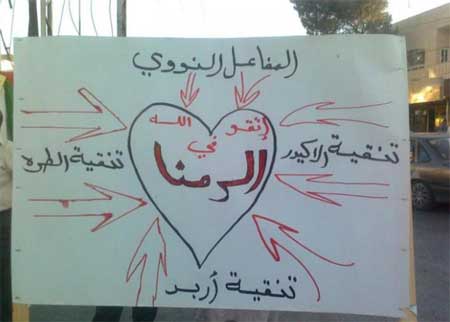 المفاعل النووي
إتقو الله
في
الرمثا
تنقية الاكيدر
تنقية الطره
تنقية أربد